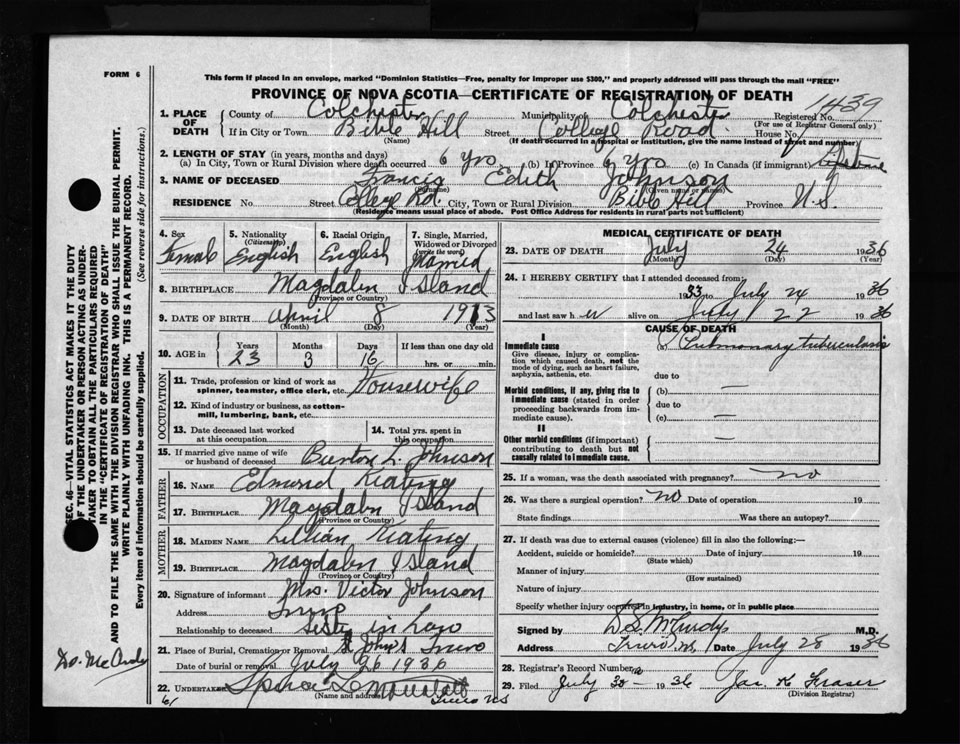 FORM 6
This form if placed in an envelope, marked "Dominion Statistics—Free, penalty for improper use $300," and properly addressed will pass through the mail "FREE"
PROVINCE OF NOVA SCOTIA—CERTIFICATE OF REGISTRATION OF DEATH
1439
1. PLACE OF DEATH
County of Colchester Municipality of Colchester Registered No.
(For use of Registrar General only)
If in City or Town Bible Hill Street College Road House No.
(Name) (If death occurred in a hospital or institution, give the name instead of street and number)
2. LENGTH OF STAY (in years, months and days)
(a) In City, Town or Rural Division where death occurred 6 yrs (b) In Province 6 yrs (c) In Canada (if immigrant)
3. NAME OF DECEASED Francis Edith Johnson
(Given name or names)
RESIDENCE No. Street College Rd. City, Town or Rural Division Bible Hill Province N.S.
(Residence means usual place of abode. Post Office Address for residents in rural parts not sufficient)
4. Sex Female
5. Nationality (Citizenship) English
6. Racial Origin English
7. Single, Married, Widowed or Divorced (write the word) Married
8. BIRTHPLACE Magdalen Island
(Province or Country)
9. DATE OF BIRTH April 8 1913
(Month) (Day) (Year)
10. AGE in Years Months Days If less than one day old
23 3 16 hrs. or min.
OCCUPATION
11. Trade, profession or kind of work as spinner, teamster, office clerk, etc. Housewife
12. Kind of industry or business, as cotton-mill, lumbering, bank, etc.
13. Date deceased last worked at this occupation
14. Total yrs. spent in this occupation
15. If married give name of wife or husband of deceased Burton L. Johnson
FATHER
16. Name Edmund Keating
17. Birthplace Magdalen Island
(Province or Country)
MOTHER
18. Maiden Name Lillian Keating
19. Birthplace Magdalen Island
(Province or Country)
20. Signature of informant Mrs. Victor Johnson
Address Truro
Relationship to deceased Sister in Law
21. Place of Burial, Cremation or Removal St John's Truro
Date of burial or removal July 26 1936
22. Undertaker
(Name and address) Truro NS
61
MEDICAL CERTIFICATE OF DEATH
23. DATE OF DEATH July 24 1936
(Month) (Day) (Year)
24. I HEREBY CERTIFY that I attended deceased from:
1933 to July 24 1936
and last saw her alive on July 22 1936
CAUSE OF DEATH
I
Immediate cause (a) Pulmonary tuberculosis
Give disease, injury or complication which caused death, not the mode of dying, such as heart failure, asphyxia, asthenia, etc.
due to
Morbid conditions, if any, giving rise to immediate cause (stated in order proceeding backwards from immediate cause).
(b) —
due to
(c) —
II
Other morbid conditions (if important) contributing to death but not causally related to immediate cause. —
25. If a woman, was the death associated with pregnancy? no
26. Was there a surgical operation? no Date of operation 19
State findings Was there an autopsy?
27. If death was due to external causes (violence) fill in also the following:—
Accident, suicide or homicide? Date of injury 19
(State which)
Manner of injury
(How sustained)
Nature of injury
Specify whether injury occurred in industry, in home, or in public place
Signed by D.S. McCurdy M.D.
Address Truro NS Date July 28 1936
28. Registrar's Record Number
29. Filed July 30 1936 Jas. K Fraser
(Division Registrar)
SEC. 46—VITAL STATISTICS ACT MAKES IT THE DUTY OF THE UNDERTAKER OR PERSON ACTING AS UNDERTAKER TO OBTAIN ALL THE PARTICULARS REQUIRED IN THE "CERTIFICATE OF REGISTRATION OF DEATH" AND TO FILE THE SAME WITH THE DIVISION REGISTRAR WHO SHALL ISSUE THE BURIAL PERMIT.
WRITE PLAINLY WITH UNFADING INK. THIS IS A PERMANENT RECORD.
Every item of information should be carefully supplied. (See reverse side for instructions.)
Dr. McCurdy